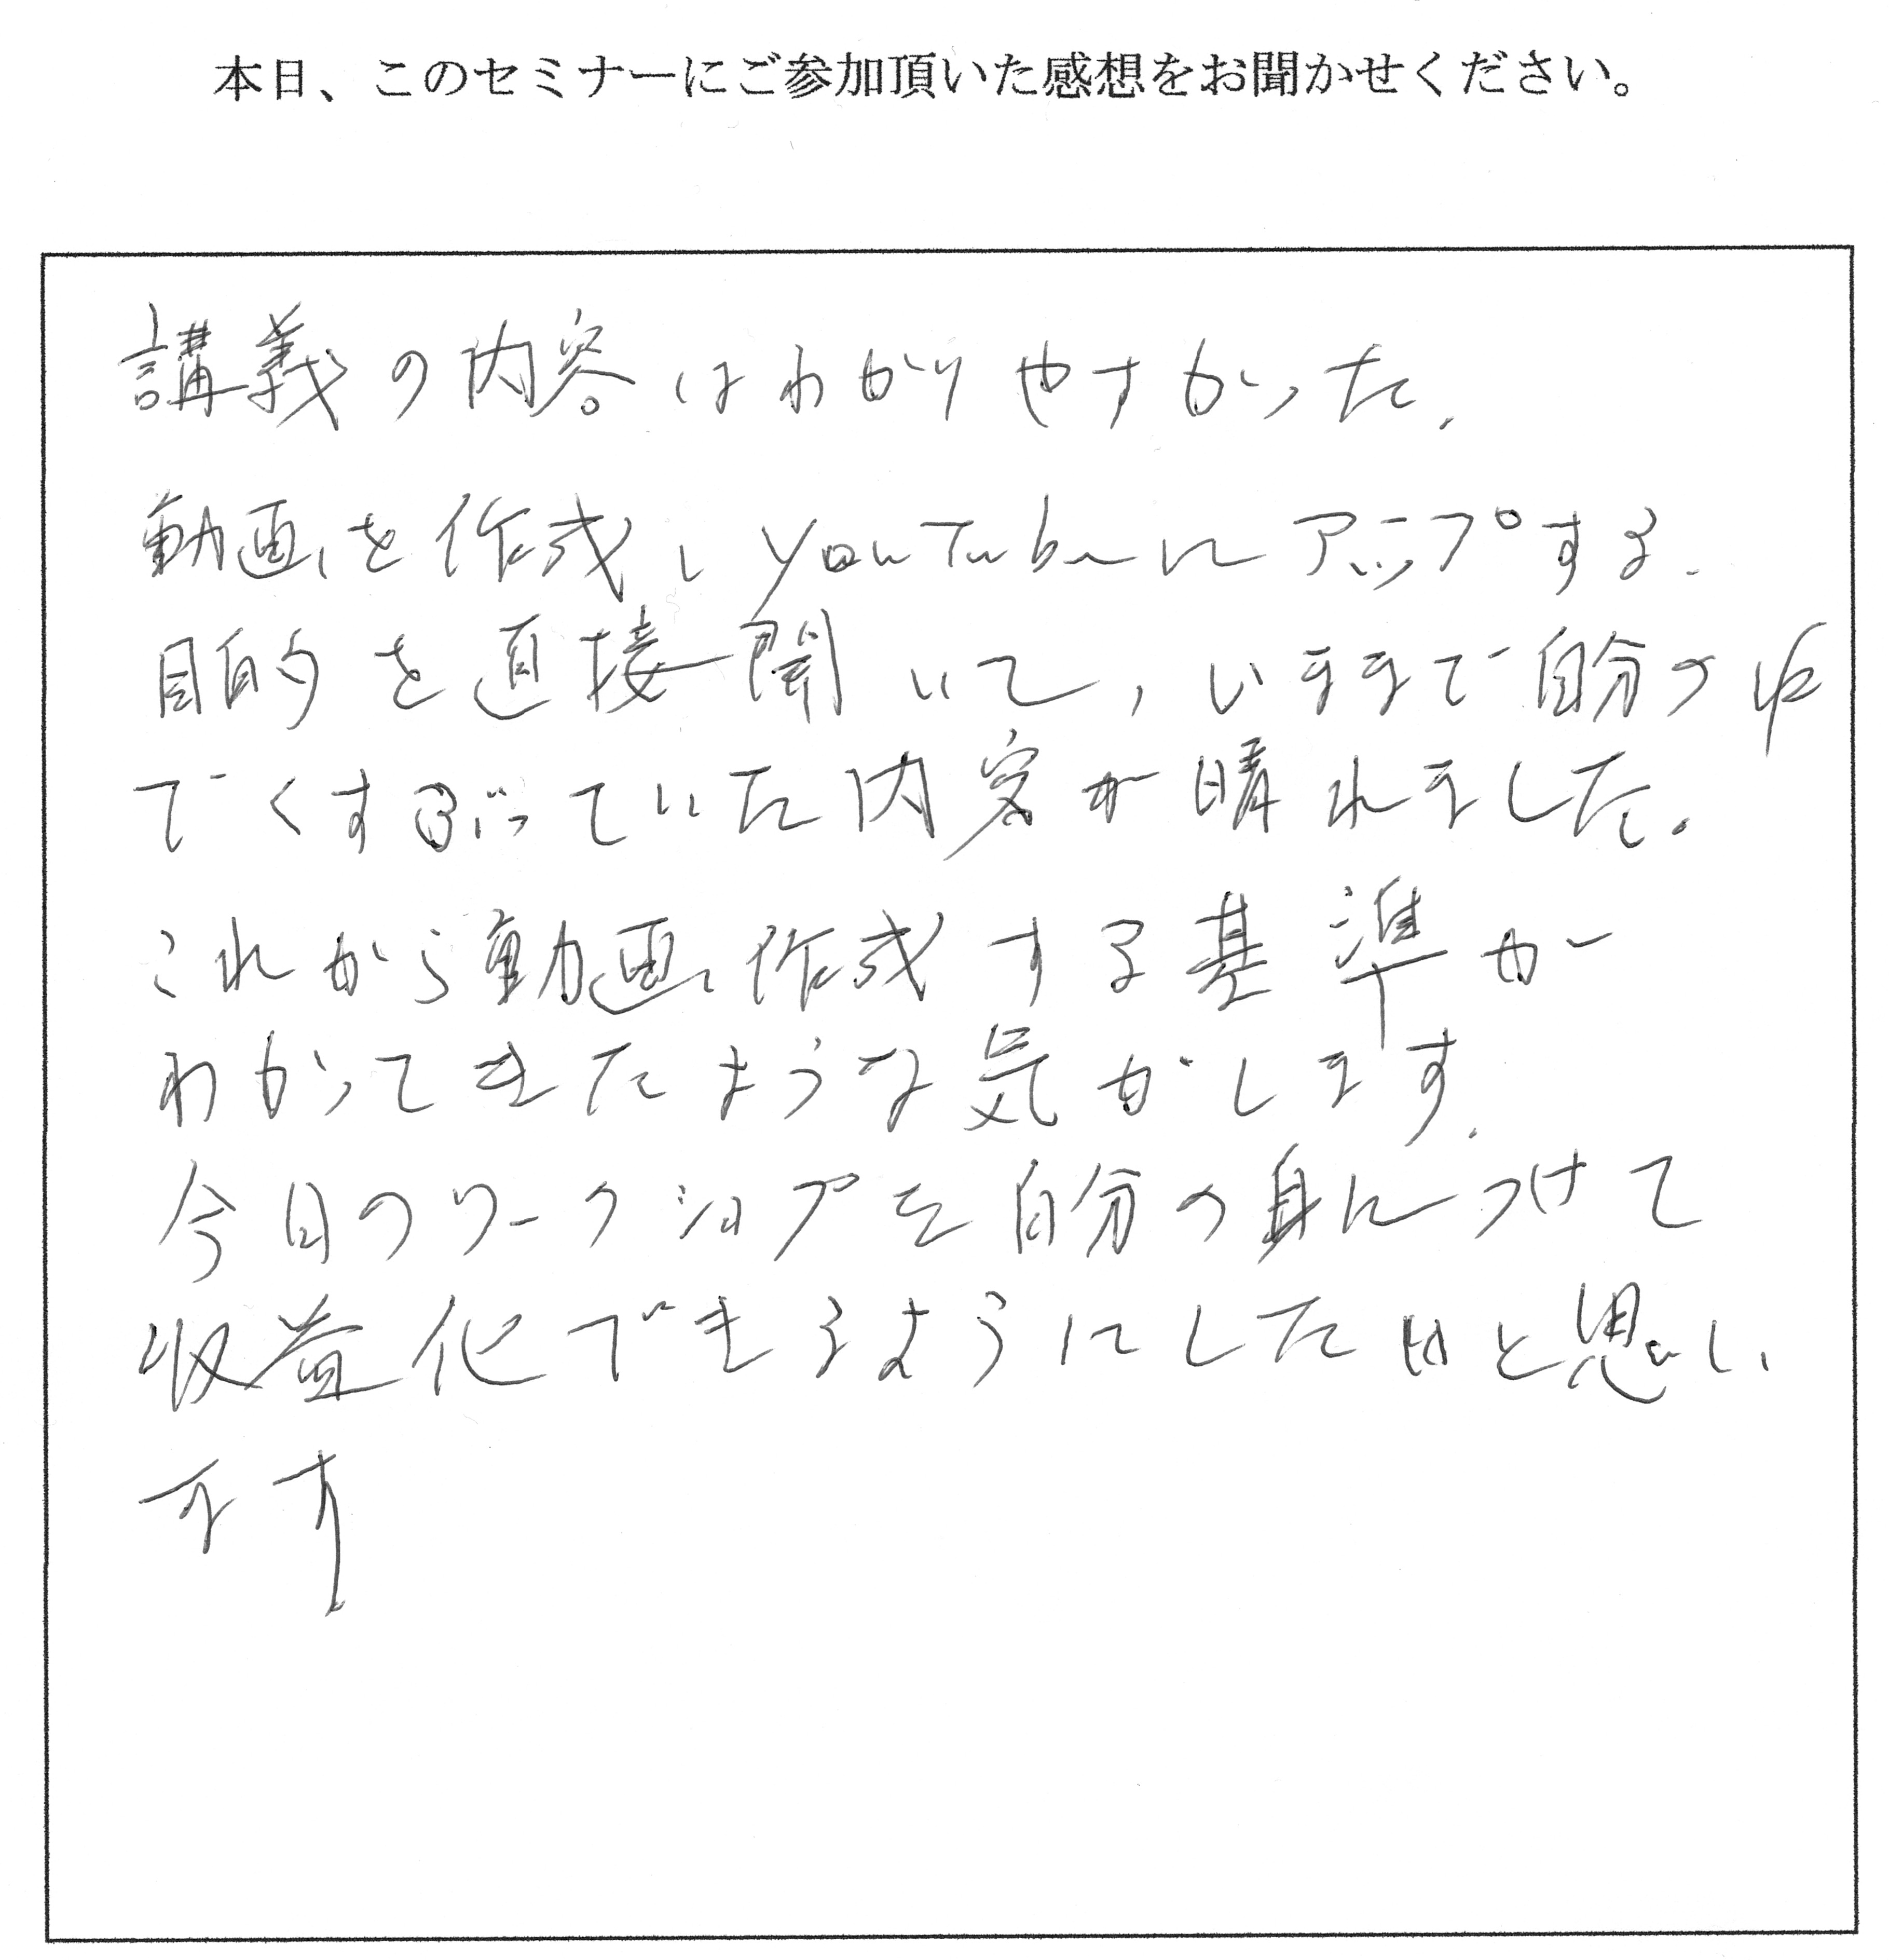 本日、このセミナーにご参加頂いた感想をお聞かせください。
講義の内容はわかりやすかった.
動画を作成し YouTubeにアップする.
目的を直接聞いて, いままで自分の中
でくすぶっていた内容が晴れました.
これから動画作成する基準が
わかってきたような気がします.
今日のワークショプを自分の身につけて
収益化できるようにしたいと思い
ます